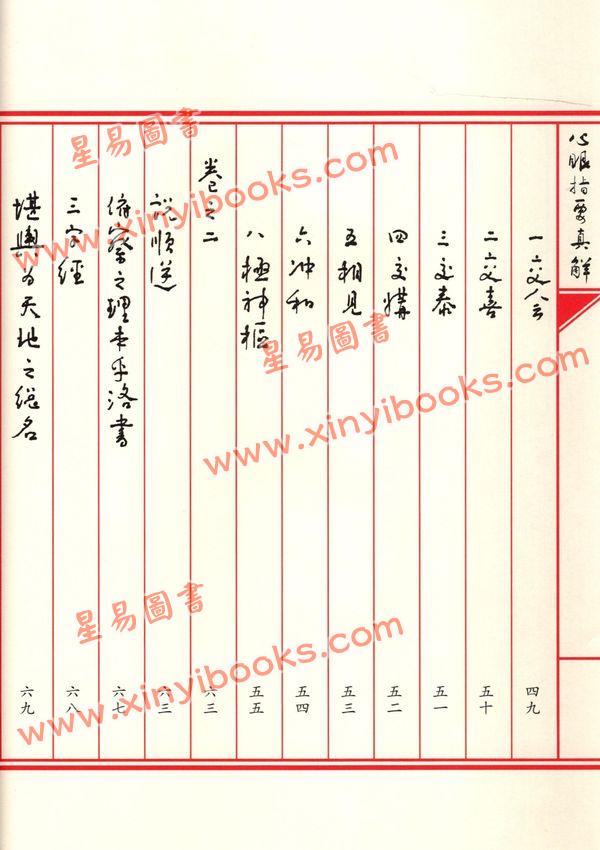 心眼指要真解
一交會 四九
二交喜 五十
三交泰 五一
四交媾 五二
五相見 五三
六冲和 五四
八極神樞 五五
卷之二 六三
說順逆 六三
俯察之理本乎洛書 六七
三字經 六八
堪輿为天地之總名 六九
星易圖書
www.xinyibooks.com
星易圖書
www.xinyibooks.com
星易圖書
www.xinyibooks.com